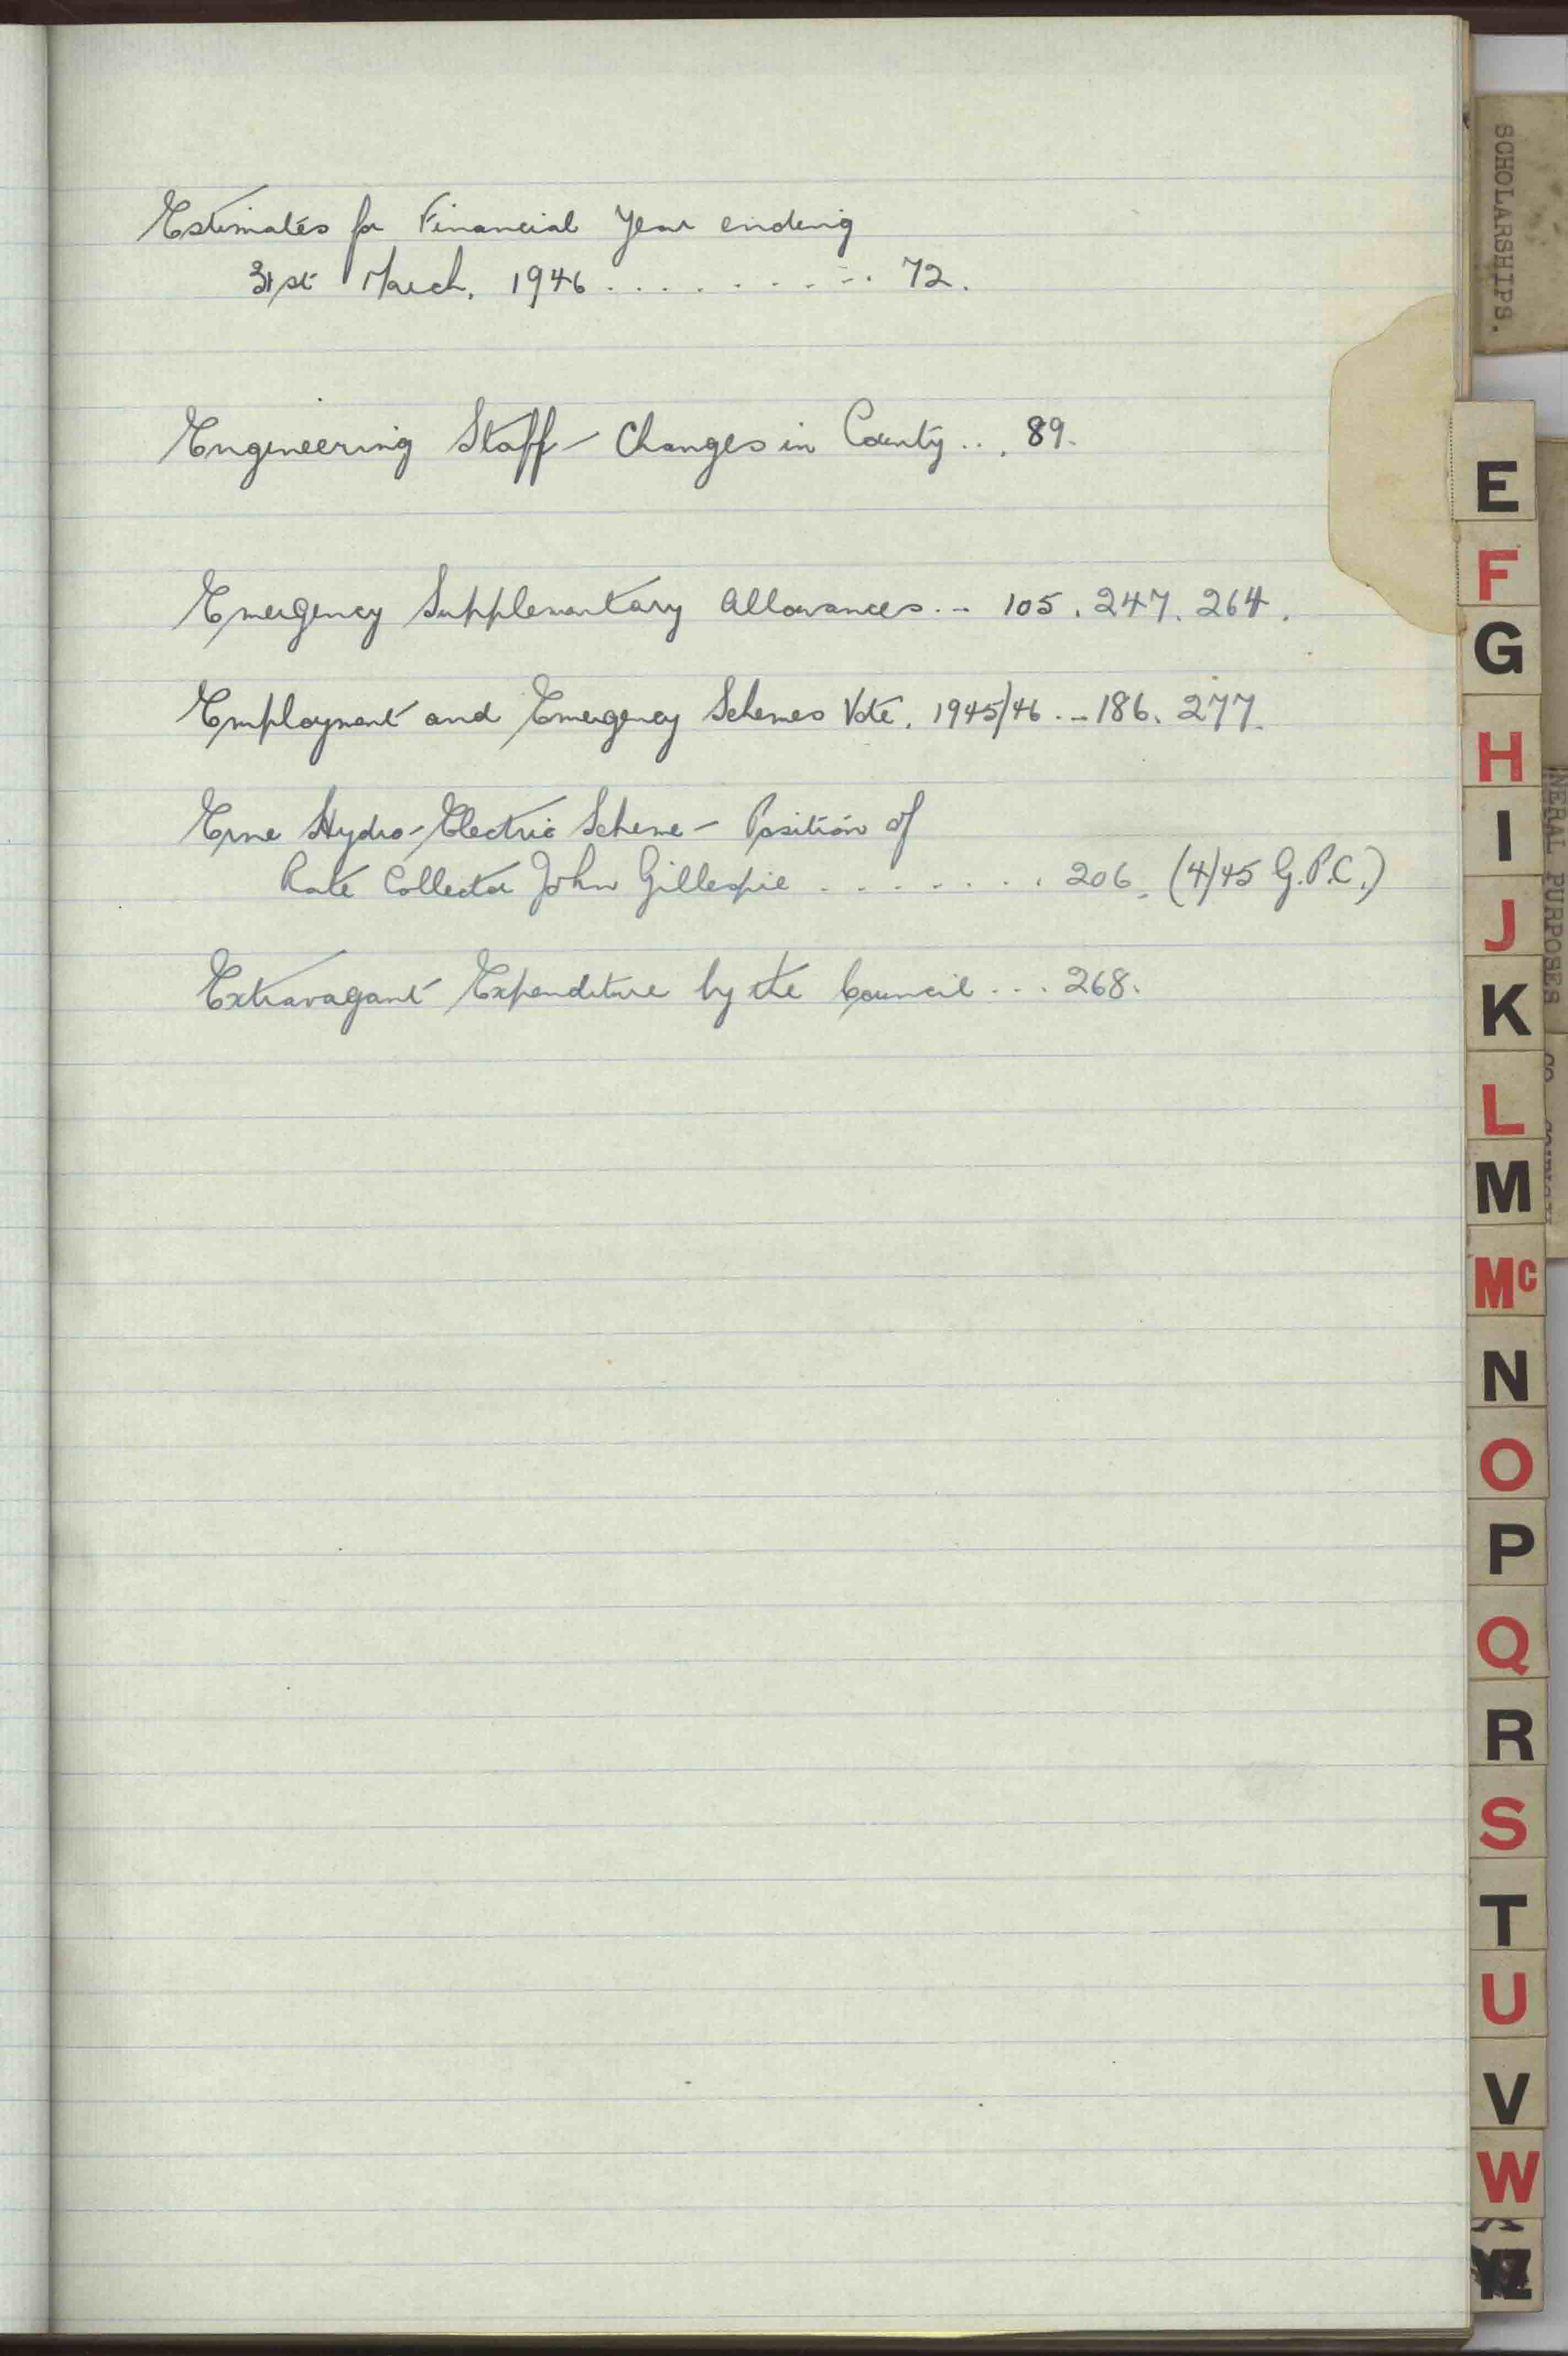 Estimates for Financial Year ending
31st March, 1946 . . . . . . . . . . 72.
Engineering Staff - Changes in County . . . 89.
Emergency Supplementary Allowances . . . 105. 247. 264.
Employment and Emergency Schemes Vote, 1945/46 . . . 186. 277.
Erne Hydro-Electric Scheme - Position of
Rate Collector John Gillespie . . . . . . . . 206. (4/45 G.P.C.)
Extravagant Expenditure by the Council . . . 268.
SCHOLARSHIPS.
E
F
G
H
I
J
K
L
M
Mc
N
O
P
Q
R
S
T
U
V
W
YZ
NERAL PURPOSES CO